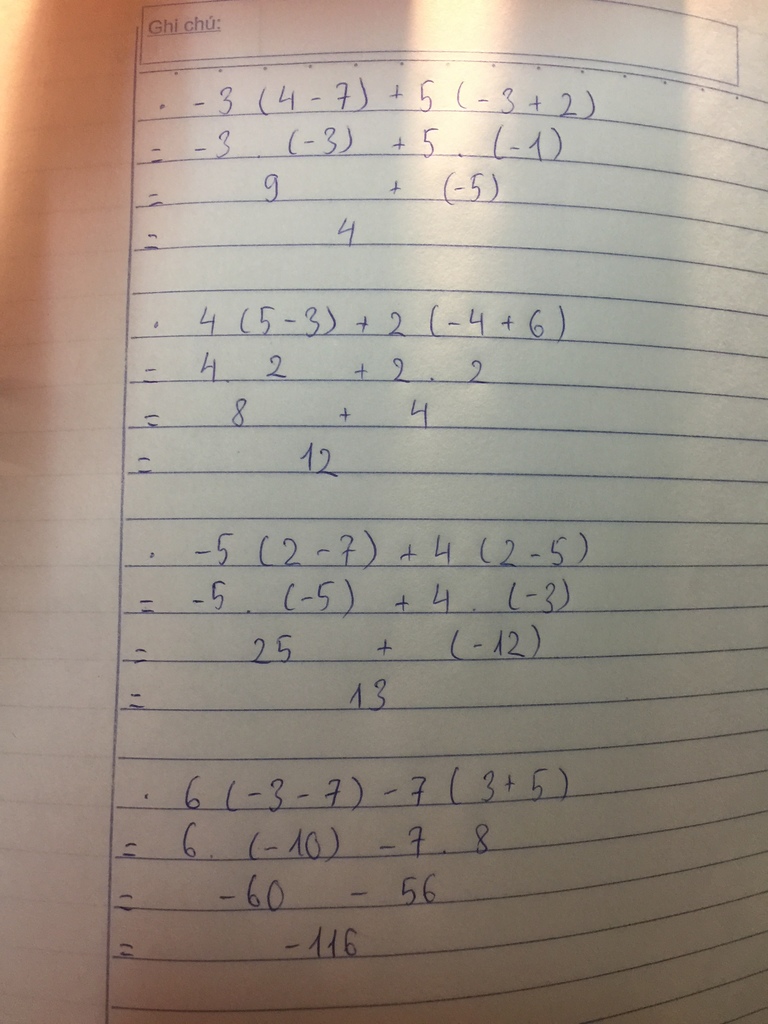 Ghi chú:
. -3 (4 - 7) + 5 (-3 + 2)
= -3 . (-3) + 5 . (-1)
= 9 + (-5)
= 4
. 4 (5 - 3) + 2 (-4 + 6)
= 4 . 2 + 2 . 2
= 8 + 4
= 12
. -5 (2 - 7) + 4 (2 - 5)
= -5 . (-5) + 4 . (-3)
= 25 + (-12)
= 13
. 6 (-3 - 7) - 7 (3 + 5)
= 6 . (-10) - 7 . 8
= -60 - 56
= -116